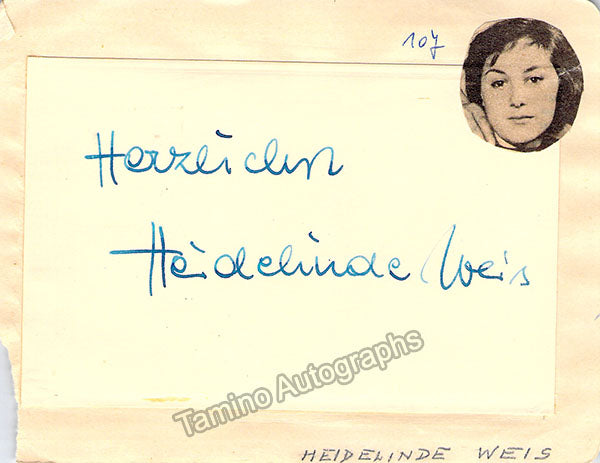 107
Herzlichst
Heidelinde Weis
Tamino Autographs
HEIDELINDE WEIS